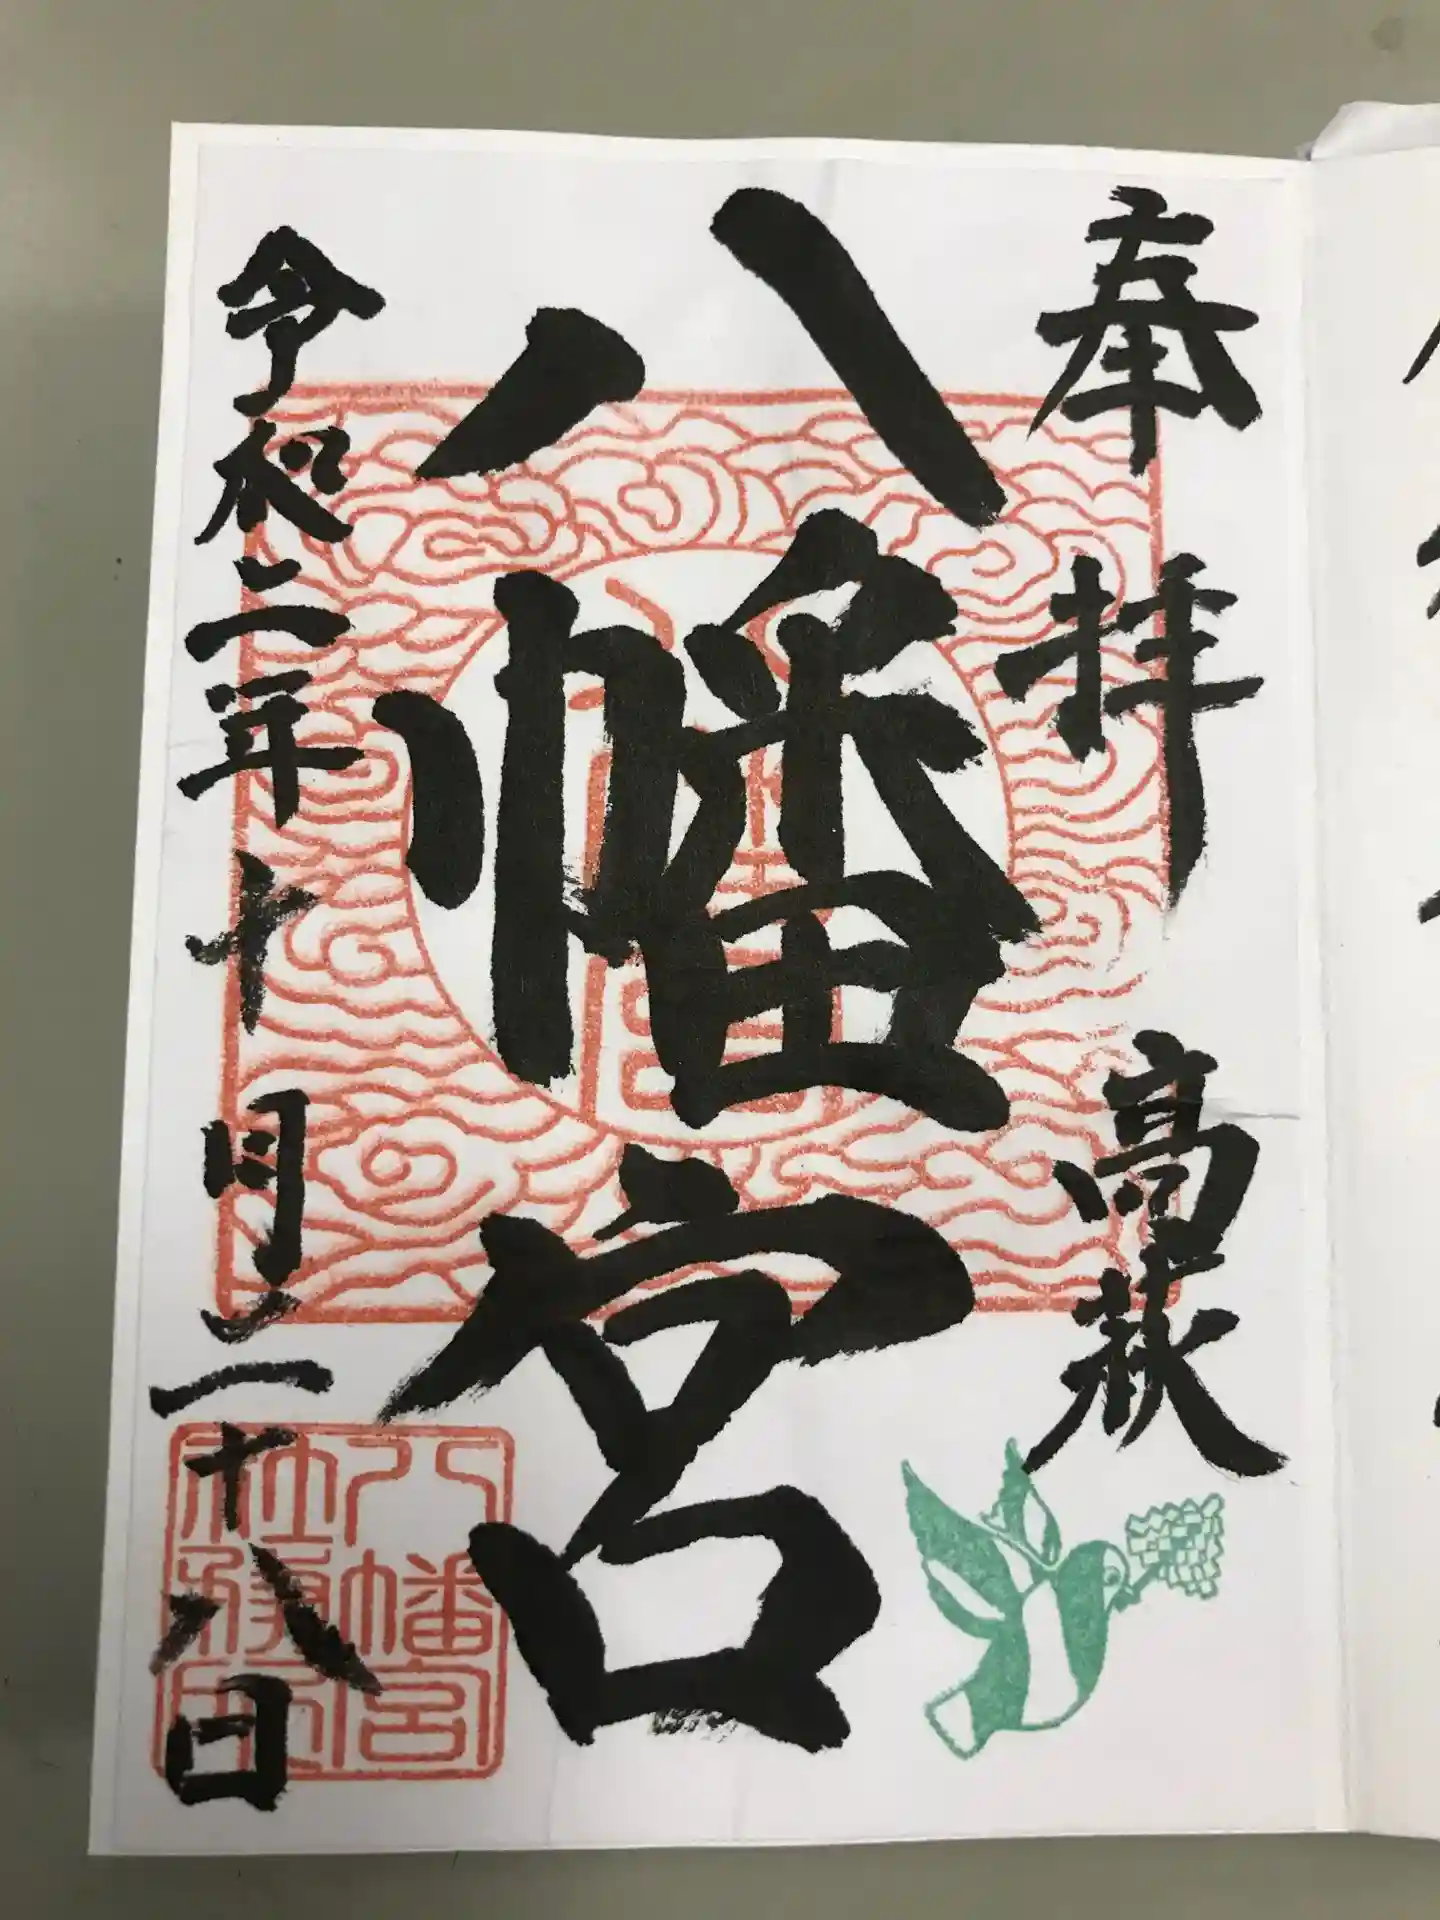 奉拝 高萩
八幡宮
令和二年十月二十八日
八幡宮